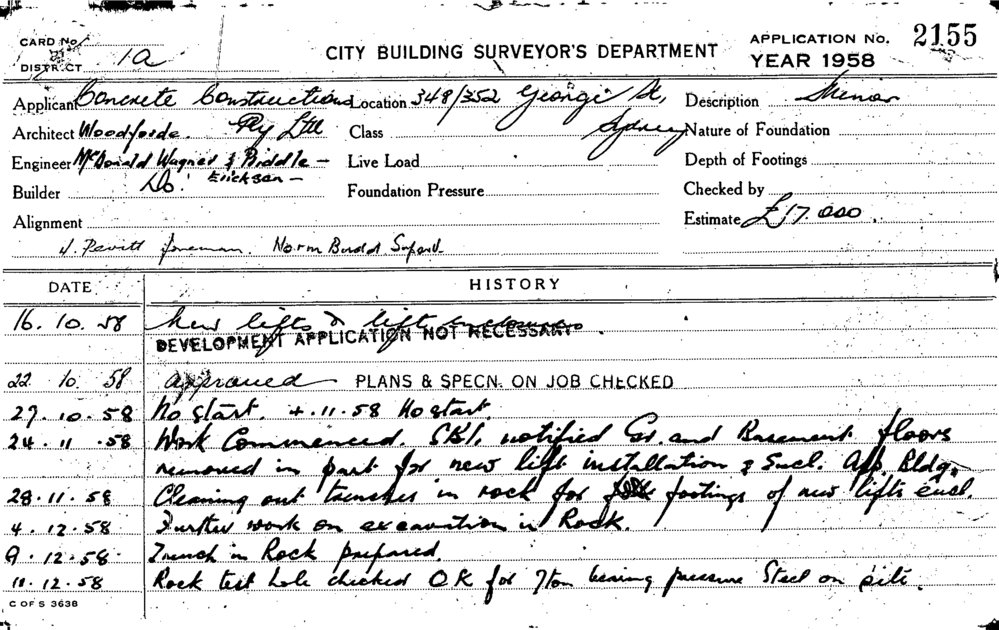 CARD No
DISTRICT 1a
CITY BUILDING SURVEYOR'S DEPARTMENT
APPLICATION No. 2155
YEAR 1958
Applicant Concrete Constructions Pty Ltd
Location 348/352 George St, Sydney
Description Minor
Architect Woodforde.
Class
Nature of Foundation
Engineer McDonald Wagner & Priddle –
Live Load
Depth of Footings
Builder Do. Erickson –
Foundation Pressure
Checked by
Alignment
Estimate £17.000.
J. Pevitt foreman. Norm Budd. Superv.
DATE HISTORY
16. 10. 58 New lifts & lift enclosures.
DEVELOPMENT APPLICATION NOT NECESSARY
22 10. 58 approved PLANS & SPECN. ON JOB CHECKED
27. 10. 58 No start. 4.11.58 No start.
24. 11. 58 Work Commenced. notified Gr. and Basement floors
removed in part for new lift installation & Encl. App. Bldg.
28. 11. 58 Cleaning out trenches in rock for footings of new lifts encl.
4. 12. 58 Further work on excavation in Rock.
9. 12. 58 Trench in Rock prepared.
11. 12. 58 Rock test hole checked OK for 7 ton bearing pressure Steel on site.
C OF S 3638